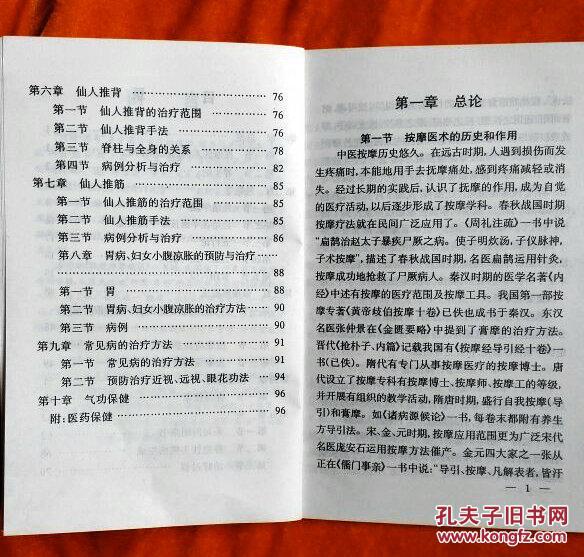 第六章 仙人推背 …………………… 76
第一节 仙人推背的治疗范围 ………… 76
第二节 仙人推背手法 ………………… 76
第三节 脊柱与全身的关系 …………… 78
第四节 病例分析与治疗 ……………… 82
第七章 仙人推筋 …………………… 85
第一节 仙人推筋的治疗范围 ………… 85
第二节 仙人推筋手法 ………………… 85
第三节 病例分析与治疗 ……………… 86
第八章 胃病、妇女小腹凉胀的预防与治疗 ……
…………………………………… 88
第一节 胃 ……………………………… 88
第二节 胃病、妇女小腹凉胀的治疗方法 … 90
第三节 病例 …………………………… 90
第九章 常见病的治疗方法 …………… 91
第一节 常见病的治疗方法 …………… 91
第二节 预防治疗近视、远视、眼花功法 … 94
第十章 气功保健 …………………… 96
附:医药保健 …………………………… 96
第一章 总论
第一节 按摩医术的历史和作用
中医按摩历史悠久。在远古时期,人遇到损伤而发
生疼痛时,本能地用手去抚摩痛处,感到疼痛减轻或消
失。经过长期的实践后,认识了抚摩的作用,成为自觉
的医疗活动,以后逐步形成了按摩学科。春秋战国时期
按摩疗法就在民间广泛应用了。《周礼注疏》一书中说
“扁鹊治赵太子暴疾尸厥之病。使子明炊汤,子仪脉神,
子术按摩”,描述了春秋战国时期,名医扁鹊运用针灸、
按摩成功地抢救了尸厥病人。秦汉时期的医学名著《内
经》中述有按摩的医疗范围及按摩工具。我国第一部按
摩专著《黄帝歧伯按摩十卷》已佚也成书于秦汉。东汉
名医张仲景在《金匮要略》中提到了膏摩的治疗方法。
晋代《抢朴子、内篇》记载我国有《按摩经导引经十卷》一
书(已佚)。隋代有专门从事按摩医疗的按摩博士。唐
代设立了按摩专科有按摩博士、按摩师、按摩工的等级,
并开展有组织的教学活动,隋唐时期,盛行自我按摩(导
引)和膏摩。如《诸病源候论》一书,每卷末都附有养生
方导引法。宋、金、元时期,按摩应用范围更为广泛宋代
名医庞安石运用按摩方法催产。金元四大家之一张从
正在《儒门事亲》一书中说:“导引、按摩、凡解表者,皆汗
— 1 —
孔夫子旧书网
www.kongfz.com